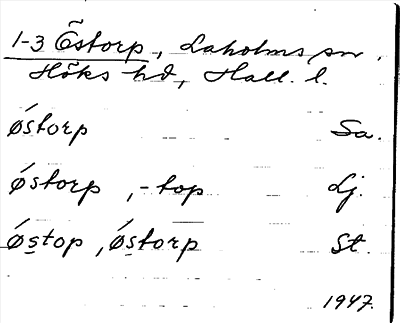 1-3 Östorp, Laholms sn.
Höks hd, Hall. l.
ǿstorp Sa.
ǿstorp, -top Lj.
ǿstop, ǿstorp St.
1947.